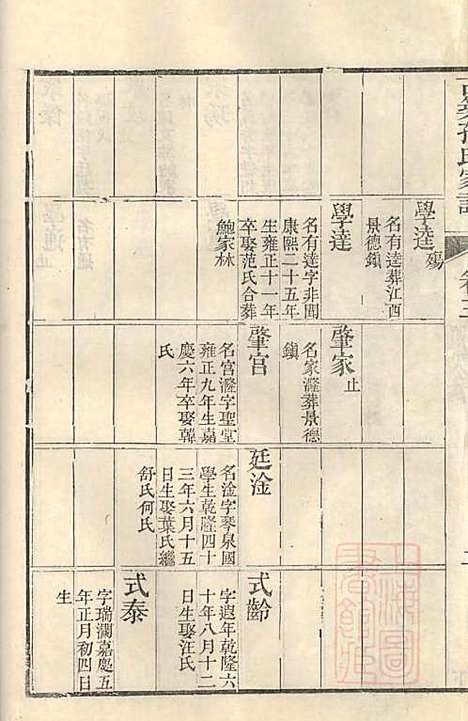 學逵殤
名有逵葬江西
景德鎮
學達
名有達字非聞
康熙二十五年
生雍正十一年
卒娶范氏合葬
鮑家林
肇家止
名家瀣葬景德
鎮
肇宮
名宮瀣字聖堂
雍正九年生嘉
慶六年卒娶韓
氏
廷淦
名淦字琴泉國
學生乾隆四十
三年六月十五
日生娶葉氏繼
舒氏何氏
式齡
字遐年乾隆六
十年八月十二
日生娶汪氏
式泰
字瑞瀾嘉慶五
年正月初四日
生